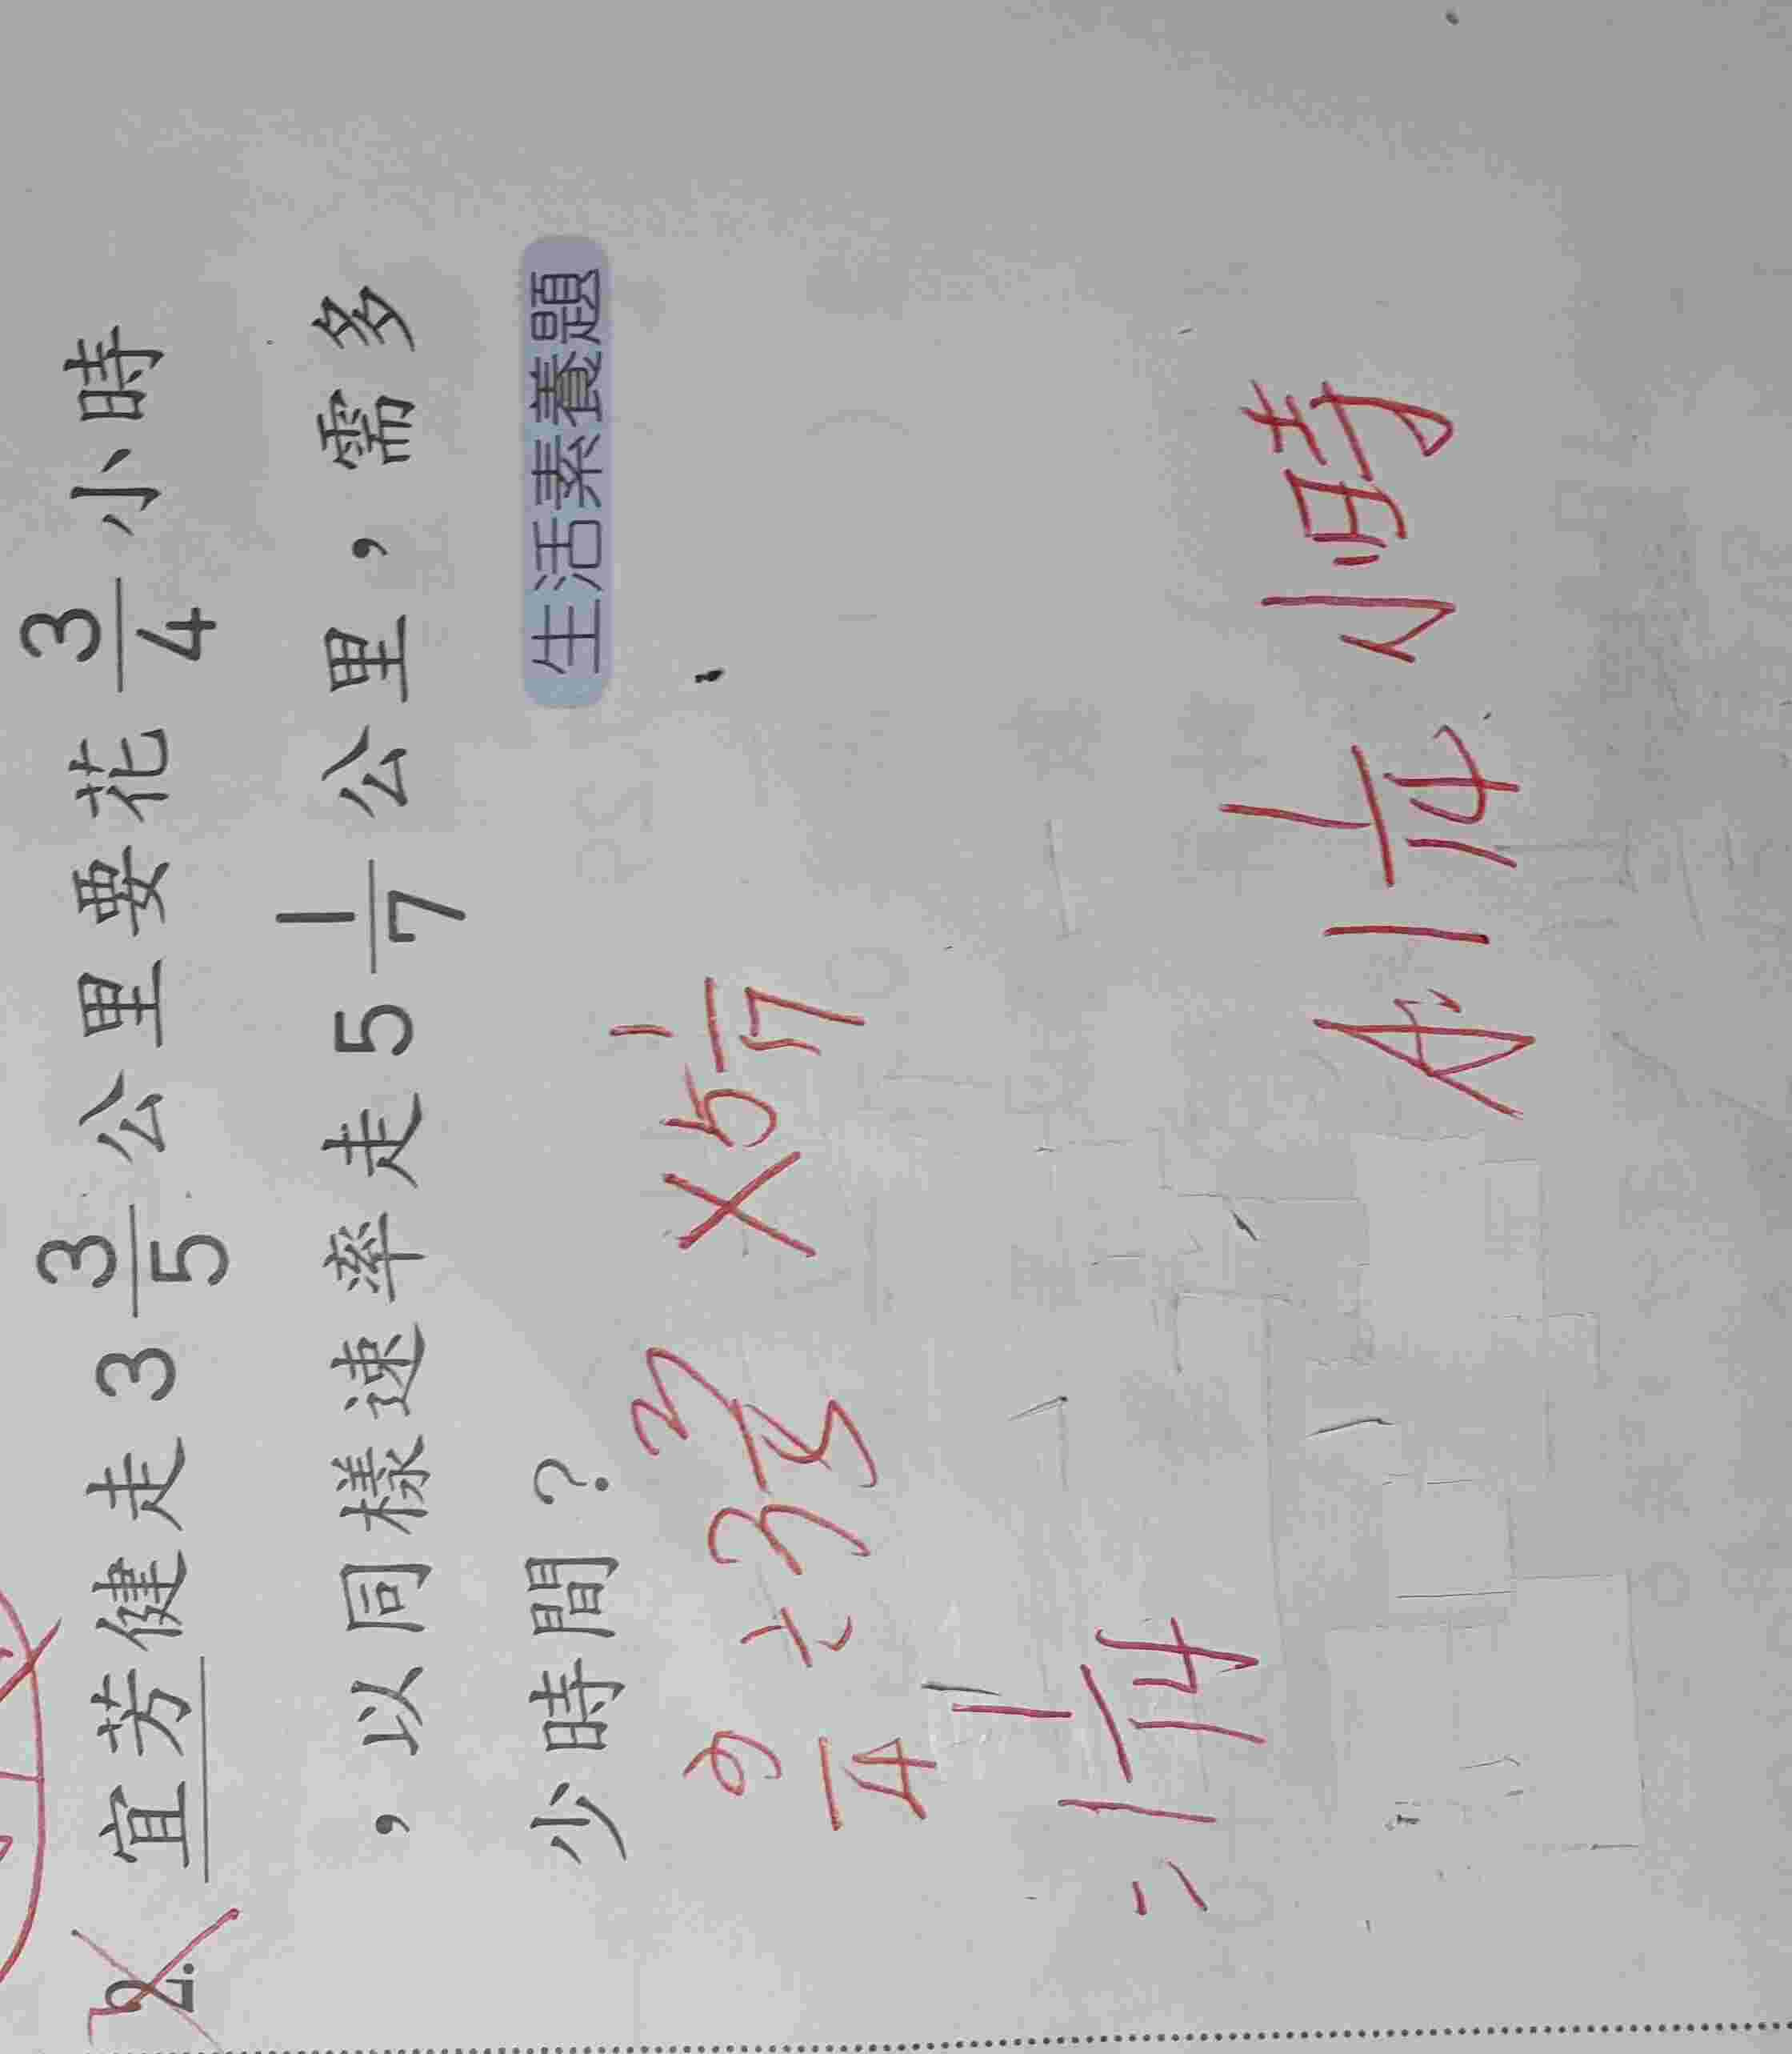 2. 宜芳健走 3 3/5 公里要花 3/4 小時
，以同樣速率走 5 1/7 公里，需多
少時間？
生活素養題
3/4 ÷ 3 3/5 × 5 1/7
= 1 1/14
A: 1 1/14 小時